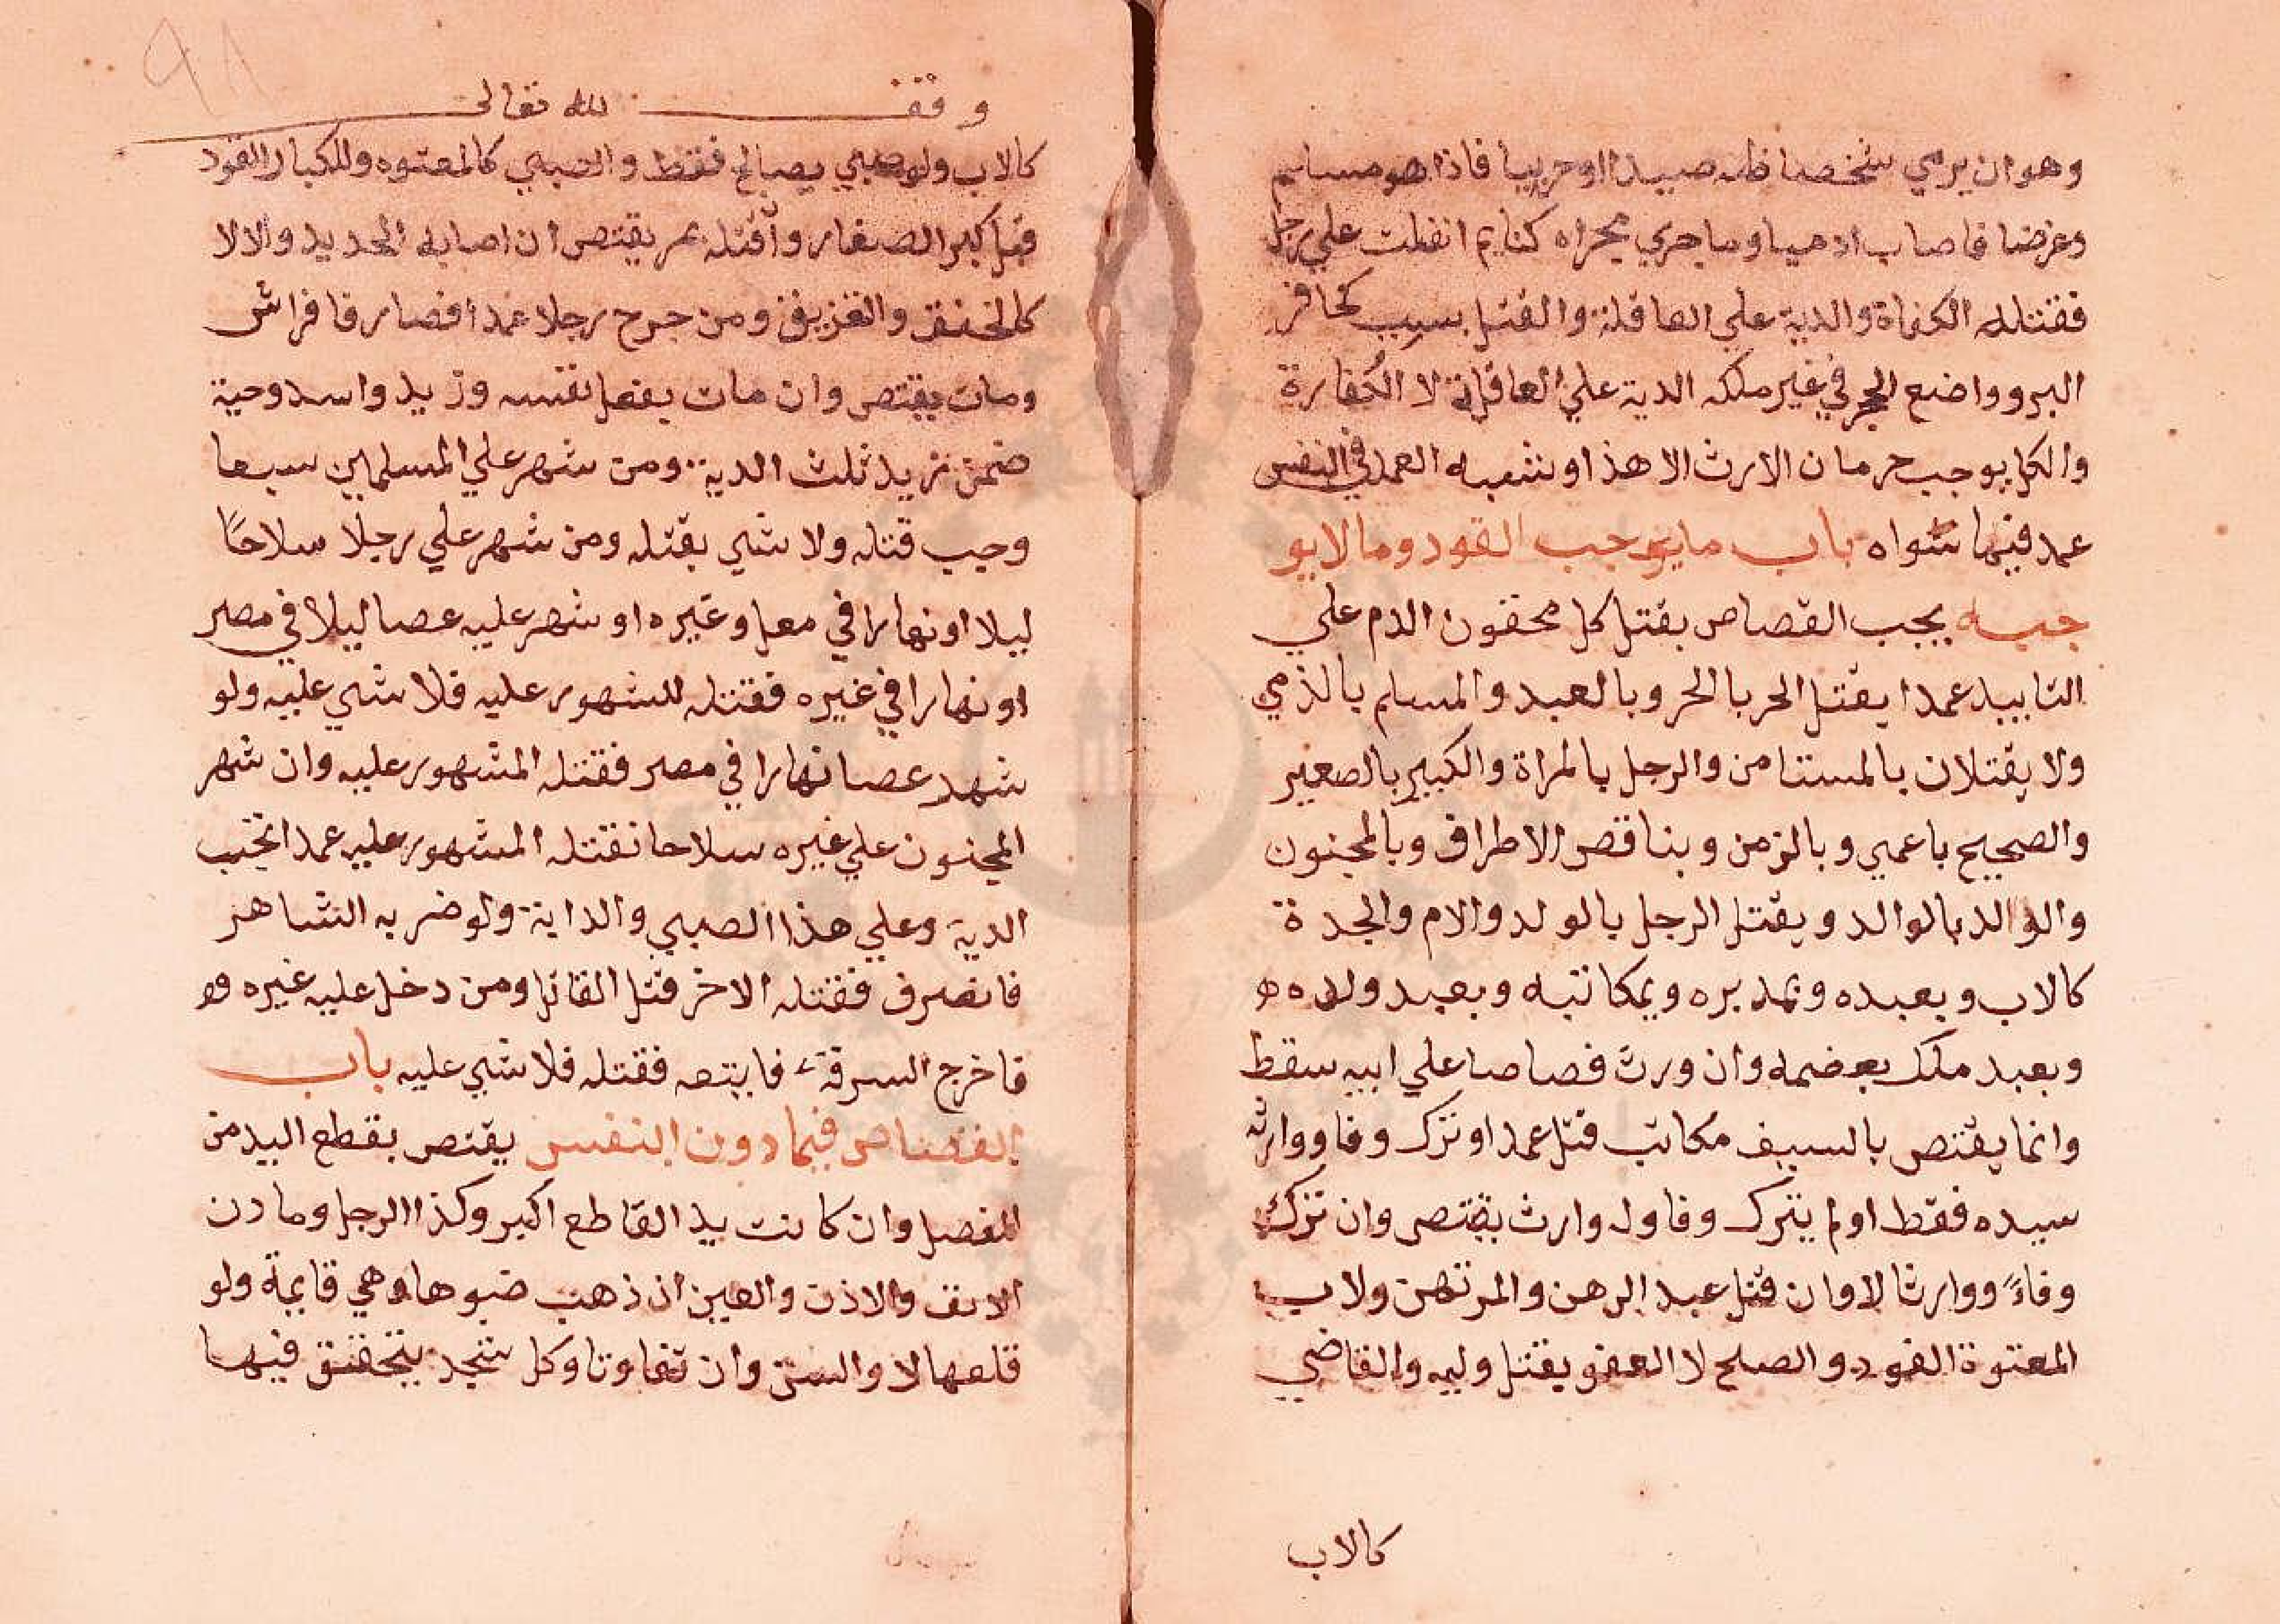 وهو ان يرمي شخصا ظنه صيدا او حربيا فاذا هو مسلم
وغرضا فاصاب ادميا وما جري مجراه كنايم انقلب علي رجل
فقتله الكفارة والدية علي العاقلة والقتل بسبب كحافر
البر وواضع الحجر في غير ملكه الدية علي العاقلة لا الكفارة
والكل يوجب حرمان الارث الا هذا وشبه العمد في النفس
عمد فيما سواه باب ما يوجب القود وما لا يو
جبه يجب القصاص بقتل كل محقون الدم علي
التابيد عمدا يقتل الحر بالحر وبالعبد والمسلم بالذمي
ولا يقتلان بالمستامن والرجل بالمراة والكبير بالصغير
والصحيح باعمي وبالزمن وبناقص الاطراف وبالمجنون
والوالد بالوالد ويقتل الرجل بالولد والام والجدة
كالاب وبعبده وبمدبره وبمكاتبه وبعبد ولده
وبعبد ملك بعضه وان ورث قصاصا علي ابيه سقط
وانما يقتص بالسيف مكاتب قتل عمدا وترك وفا ووارثه
سيده فقط او لم يترك وفا وله وارث يقتص وان ترك
وفاءً ووارثا لا وان قتل عبد الرهن والمرتهن ولاب
المعتوة القود والصلح لا العفو بقتل وليه والقاضي
كالاب
وقف لله تعالى
٩٨
كالاب ولو صبي يصالح فقط والصبي كالمعتوه وللكبار القود
قبل كبر الصغار وان قتله بمر يقتص ان اصابه الحديد والا لا
كالخنق والتغريق ومن جرح رجلا عمدا فصار قا فراش
ومات يقتص وان مات بفعل نفسه وزيد واسد وحية
ضمن زيد ثلث الدية ومن شهر علي المسلمين سيفا
وجب قتله ولا شي بقتله ومن شهر علي رجلا سلاحًا
ليلا او نهارا في مصر وغيره او شهر عليه عصا ليلا في مصر
او نهارا في غيره فقتله المشهور عليه فلا شي عليه ولو
شهد عصا نهارا في مصر فقتله المشهور عليه وان شهر
المجنون علي غيره سلاحا فقتله المشهور عليه عمدا تجب
الدية وعلي هذا الصبي والداية ولو ضربه الشاهر
فانصرف فقتله الاخر قتل القاتل ومن دخل عليه غيره
فاخرج السرقة فابتعه فقتله فلا شي عليه باب
القصاص فيما دون النفس يقتص بقطع اليد من
المفصل وان كانت يد القاطع اكبر وكذا الرجل وما دن
الانف والاذن والعين ان ذهب ضوها وهي قايمة ولو
قلعها لا والسن وان تفاوتا وكل شجة يتحقق فيها